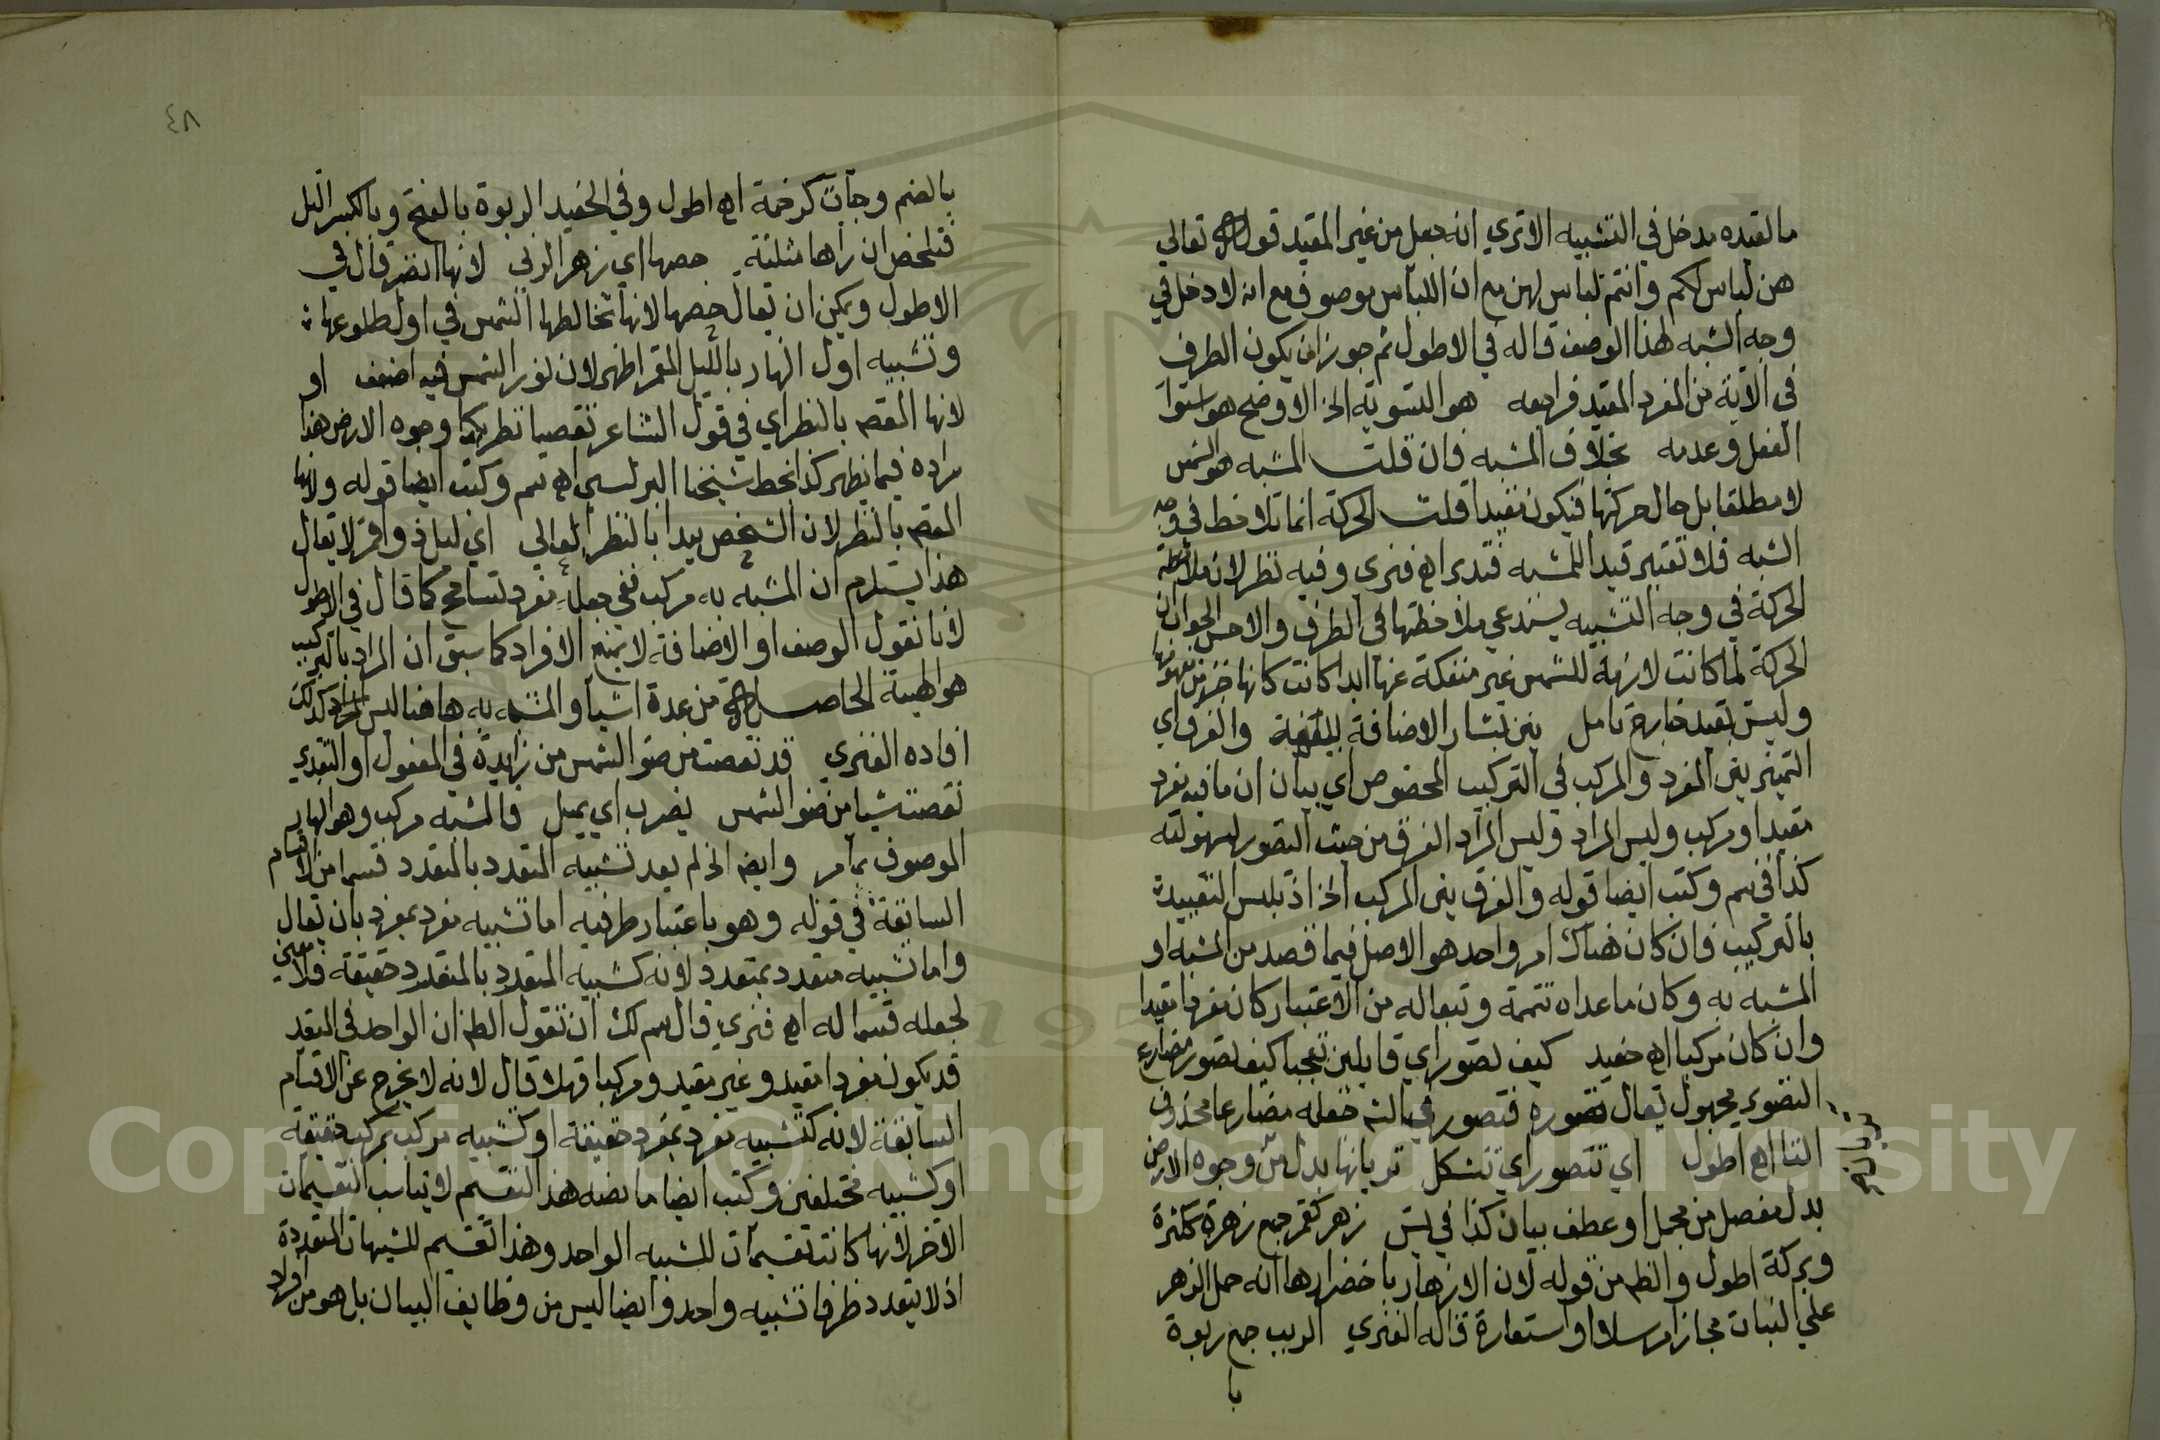 ما لقيده مدخل في التشبيه الا تري انه جعل من غير المقيد قوله تعالي
هن لباس لكم وانتم لباس لهن مع ان اللباس موصوف مع انه لا دخل في
وجه الشبه لهذا الوصف قاله في الاطول ثم جوز ان يكون الطرف
في الآية من المفرد المقيد فراجعه هو التسوية الخ الاوضح هو استوا
الفعل وعدمه بخلاف المشبه فان قلت المشبه هو الشمس
لا مطلقا بل حال حركتها فيكون مقيدا قلت الحركة انما تلاحظ في وجه
الشبه فلا تعتبر قيدا للمشبه فتدبر اه فنري وفيه نظر لان ملاحظة
الحركة في وجه التشبيه يستدعي ملاحظتها في الطرف والاحسن الجواب ان
الحركة لما كانت لازمة للشمس غير منفكة عنها ابدا كانت كانها جزء من مفهومها
وليس بقيد خارج تامل بين بشار الاضافة والفرق اي
التميز بين المفرد والمركب في التركيب المخصوص اي بيان ان ما فيه مفرد
مقيد او مركب وليس المراد وليس المراد الفرق من حيث التصور لسهولته
كذا في سم وكتب ايضا قوله والفرق بين المركب الخ اذ تلبس التقييد
بالتركيب فان كان هناك امر واحد هو الاصل فيما قصد من المشبه او
المشبه به وكان ما عداه تتمة وتبعا له من الاعتبار كان مفردا مقيدا
وان كان مركبا اه حفيد كيف تصور اي قايلين تعجبا كيف تصور مضارع
التصوير مجهول يقال تصوره فتصور في الشرح فعله مضارعا محذوف
التا اه اطول اي تتصور اي تتشكل تريانها بدل من وجوه الارض
بدل مفصل من مجمل او عطف بيان كذا في يس زهر كقمر جمع زهرة كثمرة
وبركة اطول والظ من قوله لان الازهار باخضرارها انه حمل الزهر
علي النبات مجازا مرسلا او استعارة قاله الفنري الربب جمع ربوة
با
٤٨
بالضم وجات كرخمة اه اطول وفي الحفيد الربوة بالفتح وبالكسر التل
فتلخص ان راها مثلثة خصها اي زهر الربي لانها انضر قال في
الاطول ويمكن ان يقال خصها لانها تخالطها الشمس في اول طلوعها
وتشبيه اول النهار بالليل المقمر اظهر لان نور الشمس فيه اضعف او
لانها المقصد بالنظر اي في قول الشاعر تقصيا نظريكما وجوه الارض هذا
مراده فيما يظهر كذا بخط شيخنا البرلسي اه سم وكتب ايضا قوله ولانها
المقصد بالنظر لان الشخص يبدا بالنظر للعالي اي ليل ذو اقمر لا يقال
هذا يستلزم ان المشبه به مركب ففي جعله مفرد تسامح كما قال في الاطول
لانا نقول الوصف او الاضافة لا يمنع الافراد كما سبق ان المراد بالتركيب
هو الهيية الحاصلة من عدة اشيا والمشبه به هاهنا ليس المراد كذلك
افاده الفنري قد نقصت من ضو الشمس من زايدة في المفعول او التقدير
نقصت شيا من ضو الشمس يضرب اي يميل فالمشبه مركب وهو النهار
الموصوف بما مر وايضا الخ لم يعد تشبيه المتعدد بالمتعدد قسما من الاقسام
السابقة في قوله وهو باعتبار طرفيه اما تشبيه مفرد بمفرد بان يقال
واما تشبيه متعدد بمتعدد لانه كتشبيه المتعدد بالمتعدد حقيقة فلا معني
لجعله قسما له اه فنري قال سم لك ان تقول الظ ان الواحد في المتعدد
قد يكون مفردا مقيد وغير مقيد ومركبا فهلا قال لانه لا يخرج عن الاقسام
السابقة لانه كتشبيه مفرد بمفرد حقيقة او كتشبيه مركب بمركب حقيقة
او كتشبيه مختلفين وكتب ايضا ما نصه هذا التقسيم لا يناسب التقسيمات
الاخر لانها كانت تقسيمات للتشبيه الواحد وهذا تقسيم للتشبيهات المتعددة
اذ لا يتعدد طرفا تشبيه واحد وايضا ليس من وظايف البيان بل هو من افراد